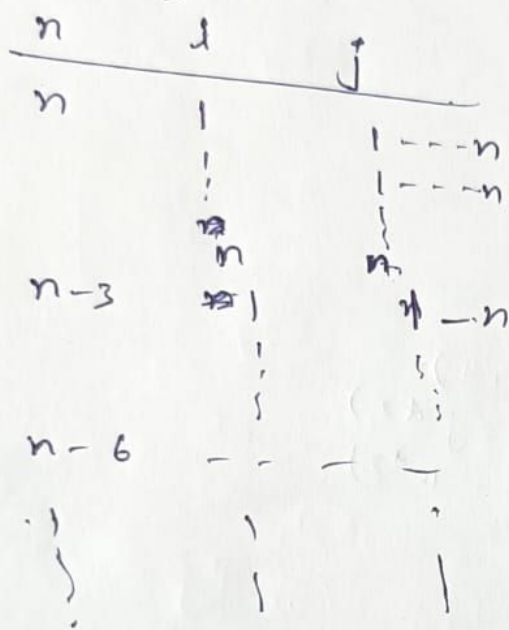 n i j
n 1 1 - - - n
1 - - - n
n n
n-3 1 1 - n
n - 6 - - - -